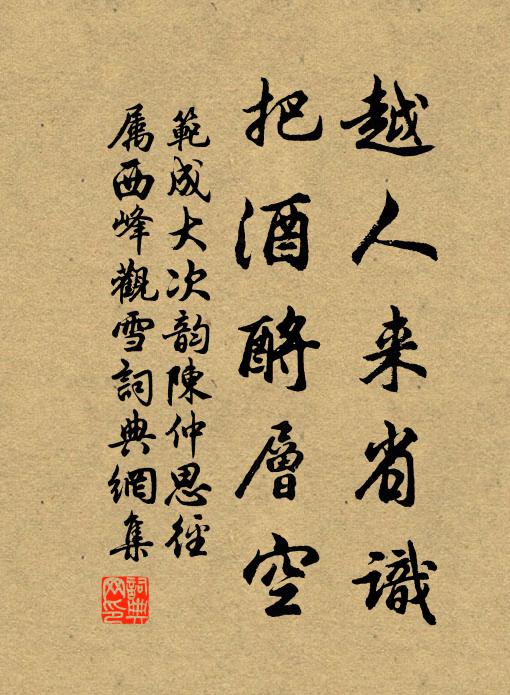 越人来省識
把酒酹層空
範成大次韵陳仲思徑
属西峰觀雪詞典網集
詞典网印